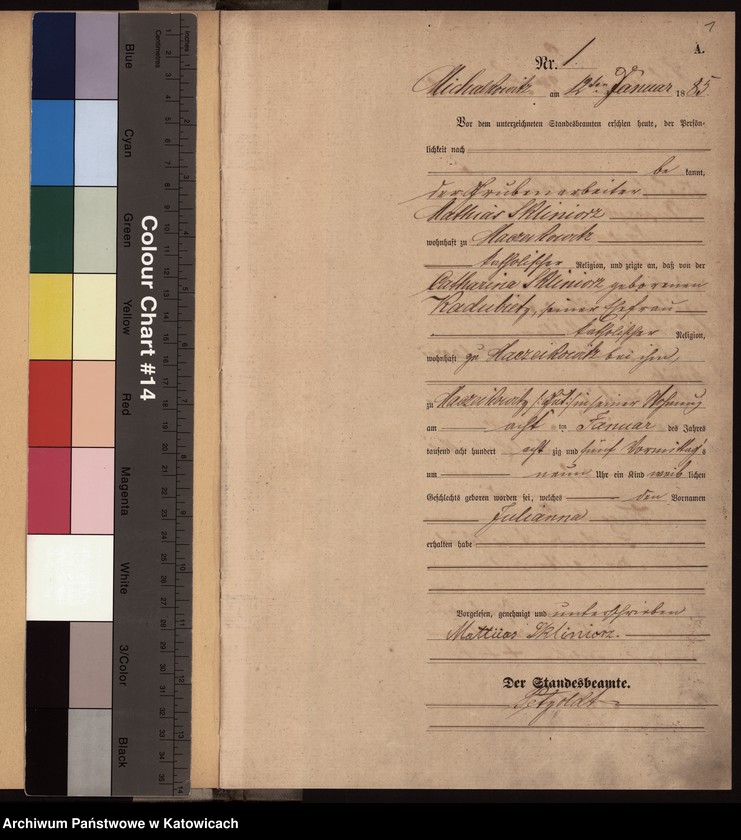 1
A.
Nr. 1
Michalkowitz am 12ten Januar 1885
Vor dem unterzeichneten Standesbeamten erschien heute, der Persön-
lichkeit nach
be kannt,
der Grubenarbeiter
Mathias Skliniorz
wohnhaft zu Maczeikowitz
katholischer Religion, und zeigte an, daß von der
Catharina Skliniorz geborenen
seiner Ehefrau
katholischer Religion,
wohnhaft zu Maczeikowitz bei ihm,
zu Maczeikowitz in seiner Wohnung
am acht ten Januar des Jahres
tausend acht hundert acht zig und fünf Vormittags
um neun Uhr ein Kind weib lichen
Geschlechts geboren worden sei, welches den Vornamen
Julianna
erhalten habe
Vorgelesen, genehmigt und unterschrieben
Mattias Skliniorz.
Der Standesbeamte.
Colour Chart #14
Blue
Cyan
Green
Yellow
Red
Magenta
White
3/Color
Black
Centimetres
Inches
Archiwum Państwowe w Katowicach